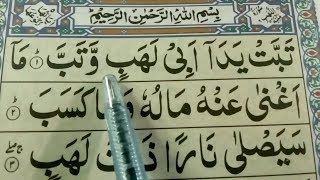 بِسْمِ اللهِ الرَّحْمٰنِ الرَّحِيْمِ
تَبَّتْ يَدَآ اَبِيْ لَهَبٍ وَّتَبَّ ۝١ مَآ
اَغْنٰى عَنْهُ مَالُهٗ وَمَا كَسَبَ ۝٢
سَيَصْلٰى نَارًا ذَاتَ لَهَبٍ ۝٣